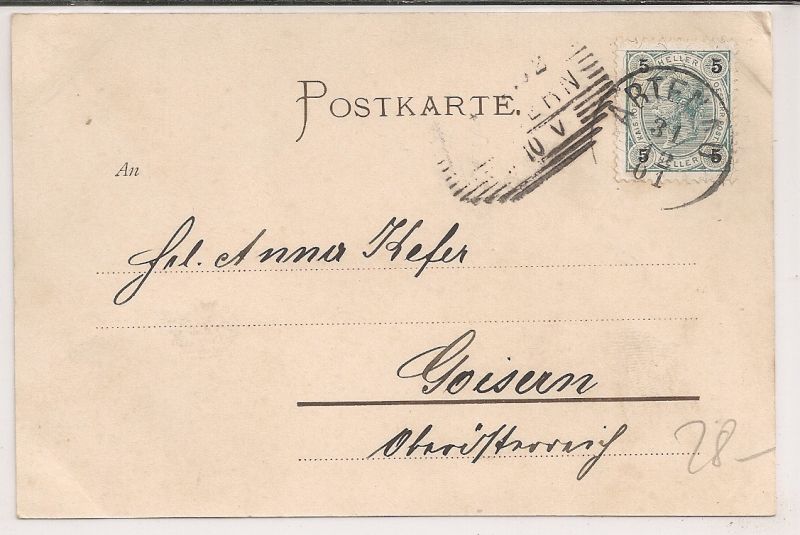 POSTKARTE.
5 HELLER 5
ARTEN
31
12
01
10 V
5 HELLER 5
An
Frl. Anna Kefer
Goisern
Oberösterreich
28-